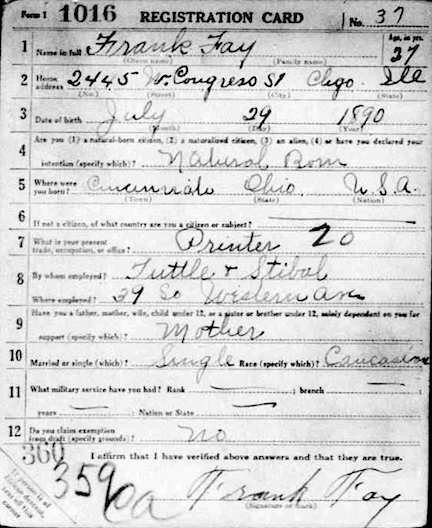 Form 1 1016 REGISTRATION CARD No. 37
1 Name in full Frank Fay Age, in yrs. 27
(Given name) (Family name)
2 Home address 2445 W. Congress St Chgo. Ill
(No.) (Street) (City) (State)
3 Date of birth July 29 1890
(Month) (Day) (Year)
Are you (1) a natural-born citizen, (2) a naturalized citizen, (3) an alien, (4) or have you declared your
4 intention (specify which)? Natural Born
5 Where were you born? Cincinnati Ohio U.S.A.
(Town) (State) (Nation)
6 If not a citizen, of what country are you a citizen or subject?
7 What is your present trade, occupation, or office? Printer 20
8 By whom employed? Tuttle & Stibal
Where employed? 29 So Western Ave
9 Have you a father, mother, wife, child under 12, or a sister or brother under 12, solely dependent on you for
support (specify which)? Mother
10 Married or single (which)? Single Race (specify which)? Caucasian
11 What military service have you had? Rank ; branch ;
years ; Nation or State
12 Do you claim exemption from draft (specify grounds)? No
360 I affirm that I have verified above answers and that they are true.
If person is of
African descent,
tear off this
corner
Frank Fay
(Signature or mark)